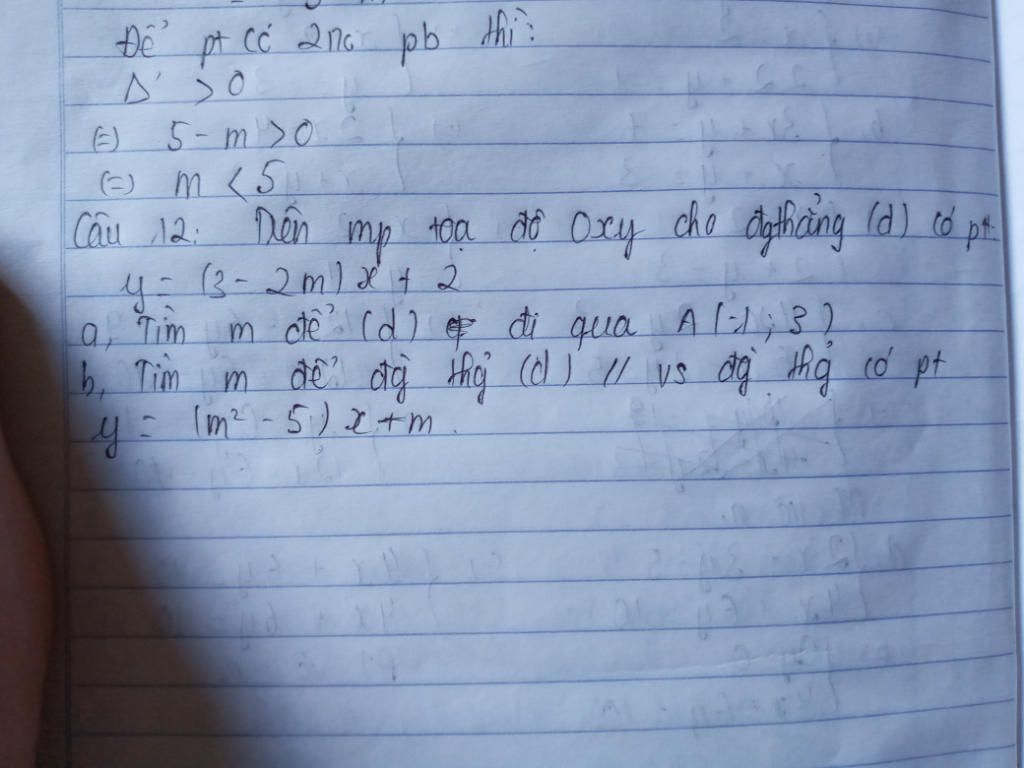 Để pt có 2no pb thì:
Δ' > 0
(=) 5 - m > 0
(=) m < 5
Câu 12: Trên mp toạ độ Oxy cho đgthẳng (d) có pt
y = (3 - 2m) x + 2
a, Tìm m để (d) đi qua A (-1; 3)
b, Tìm m để đg thg (d) // vs đg thg có pt
y = (m² - 5) x + m.